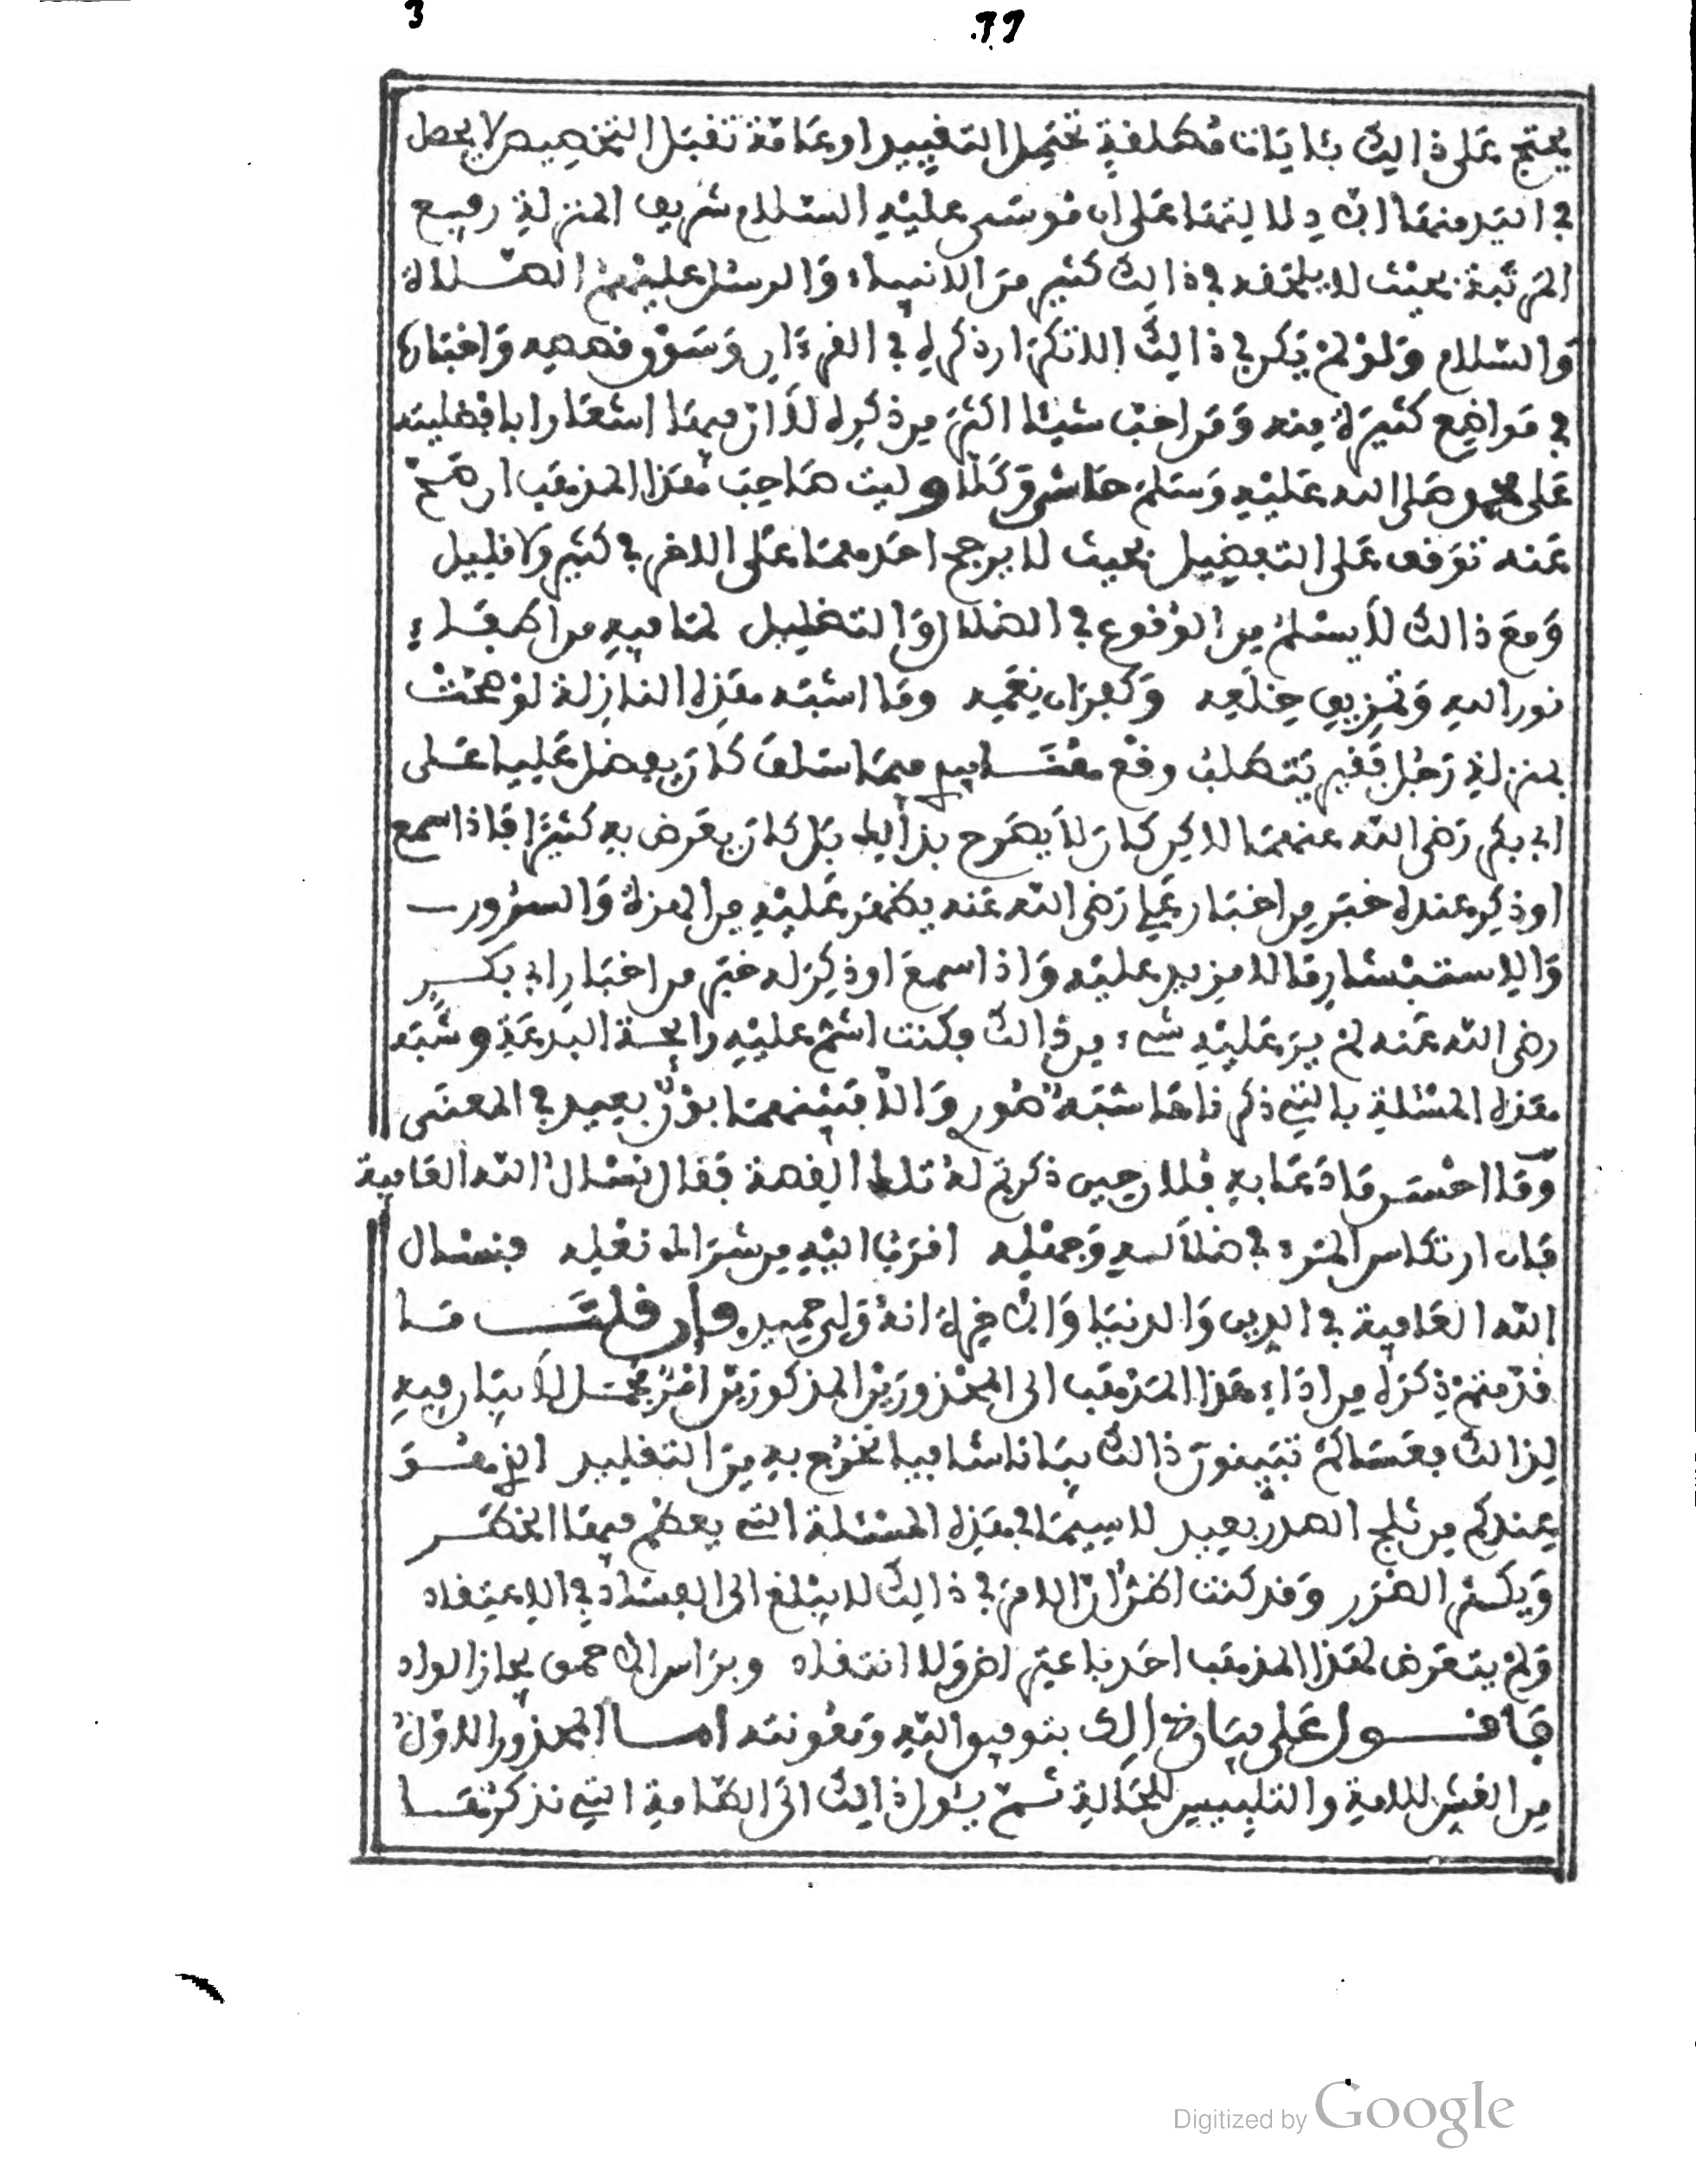 3
77
يحتج على ذالك بئايات مطلقة تحتمل التقييد او عامة تقبل التخصيص لا يحصل
في اليد منها الا دلالتها على ان موسى عليه السلام شريف المنزلة رفيع
المرتبة بحيث لا يلحقه في ذالك كثير من الانبياء والرسل عليهم الصلاة
والسلام ولو لم يكن في ذالك الا تكرار ذكره في القرءان وسوق قصصه واخباره
في مواضع كثيرة منه ومن احب شيئا اكثر من ذكره لا ان فيها اشعارا بافضليته
على محمد صلى الله عليه وسلم حاش وكلا وليت صاحب هذا المذهب ان صح
عنه توقف على التفضيل بحيث لا يرجح احدهما على الاخر في كثير ولا قليل
ومع ذالك لا يسلم من الوقوع في الضلال والتضليل لما فيه من اطفاء
نور الله وتمزيق خلعه وكفران نعمه وما اشبه هذه النازلة لو صحت
بمنزلة رجل فقير يتطلب وقع فيما سلف كان يفضل عليا على
ابي بكر رضي الله عنهما لاكن كان لا يصرح بذالك بل كان يعرض به كثيرا فاذا سمع
او ذكر عنده خبر من اخبار علي رضي الله عنه يظهر عليه من الهزة والسرور
والاستبشار ما لا مزيد عليه واذا سمع او ذكر له خبر من اخبار ابي بكر
رضي الله عنه لم ير عليه شيء من ذالك فكنت اشم عليه رائحة البدعة وشبه
هذه المسئلة بالتي ذكرناها شبه صوري والا فبينهما بون بعيد في المعنى
وما احسن ما دعا به فلان حين ذكرتم له تلك القصة فقال نسال الله العافية
فان ارتكاس المرء في ضلاله وجهله اقرب اليه من شراك نعله فنسال
الله العافية في الدين والدنيا والاخرة انه ولي حميد وان قلت ما
قدمتم ذكره من اداء هذا المذهب الى المحذورين المذكورين امر مجمل لا بيان فيه
لذالك فعساكم تبينون ذالك بيانا شافيا نخرج به من التقليد الذي هو
عندكم من ثلج الصدر بعيد لا سيما في هذه المسئلة التي يعظم فيها الخطر
ويكثر الضرر وقد كنت اظن ان الامر في ذالك لا يبلغ الى الفساد في الاعتقاد
ولم يتعرض لهذا المذهب احد باعتراض ولا انتقاد
فاقول على بيان ذالك بتوفيق الله ومعونته اما المحذور الاول
من الغش للامة والتلبيس للحالة ثم يئول ذالك الى الطامة التي نذكرها
Digitized by Google